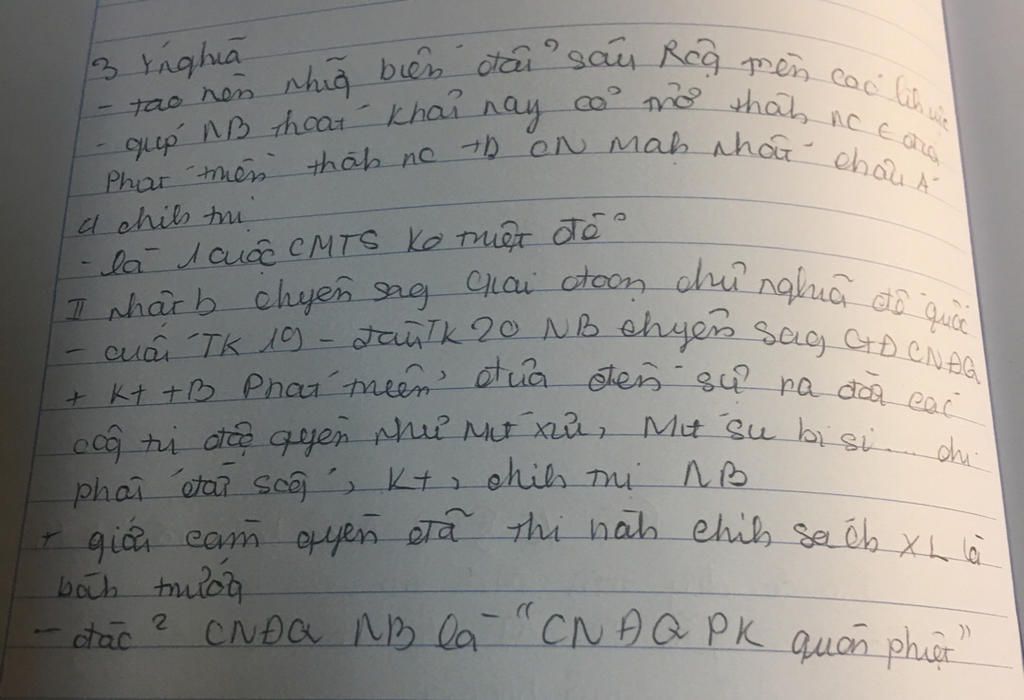 3 Ý nghĩa
- tạo nên nhữg biến đổi sâu Rộg trên các lĩnh vực
- giúp NB thoát khỏi nguy cơ trở thàh nc
Phát triển thàh nc TB CN Mạh nhất châu Á
d chíh trị
- là 1 cuộc CMTS ko triệt để
II Nhật b chyển sag Giai đoạn chủ nghĩa đế quốc
- cuối TK 19 - đầu TK 20 NB chyển sag GĐ CNĐQ
+ Kt TB Phát triển đưa đến sự ra đời các
côg ti độc quyền như Mít xưi, Mít su bi si... chi
phối đời sốg, Kt, chíh trị NB
+ giới cầm quyền đã thi hàh chíh sách XL là
bàh trướg
- đặc ² CNĐQ NB là "CNĐQ PK quân phiệt"